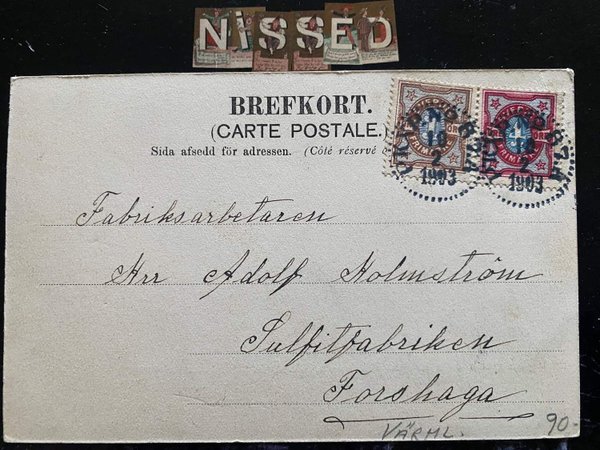 NiSSED
BREFKORT.
(CARTE POSTALE.)
Sida afsedd för adressen. (Côté réservé
18
2
1903
18
2
1903
Fabriksarbetaren
Hrr Adolf Holmström
Sulfitfabriken
Forshaga
VÄRML.
90-